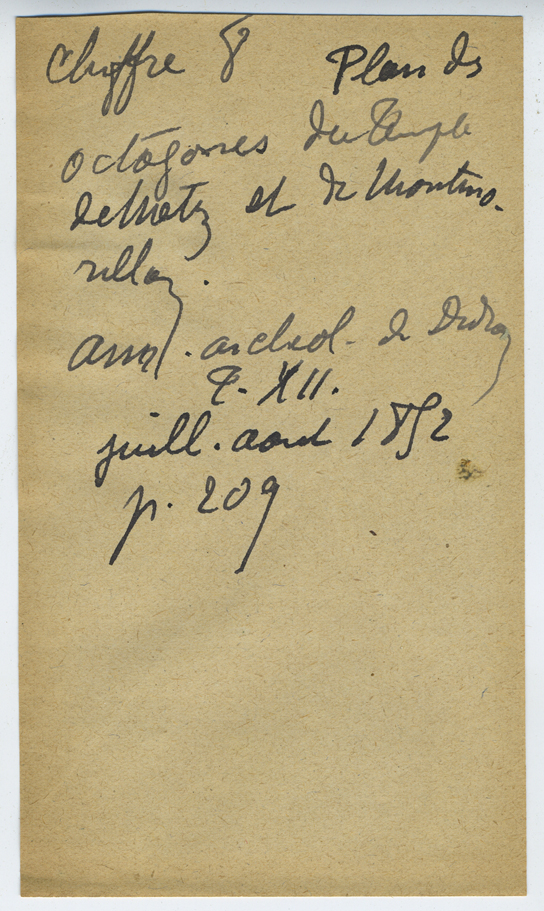 Chiffre 8 Plan des
octogones du Temple
de Metz et de Montmo-
rillon.
ann. archeol. de Didron
T. XII.
juill. aout 1852
p. 209